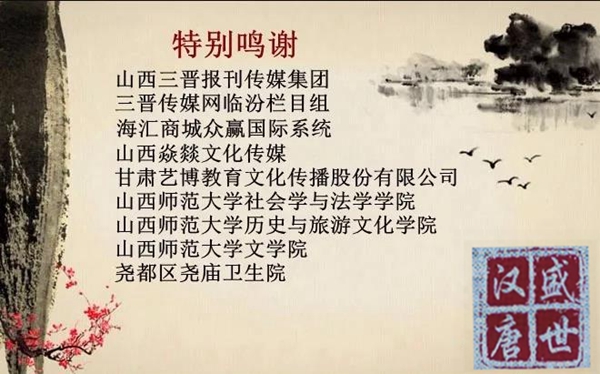 特别鸣谢
山西三晋报刊传媒集团
三晋传媒网临汾栏目组
海汇商城众赢国际系统
山西焱燚文化传媒
甘肃艺博教育文化传播股份有限公司
山西师范大学社会学与法学学院
山西师范大学历史与旅游文化学院
山西师范大学文学院
尧都区尧庙卫生院
盛世
汉唐